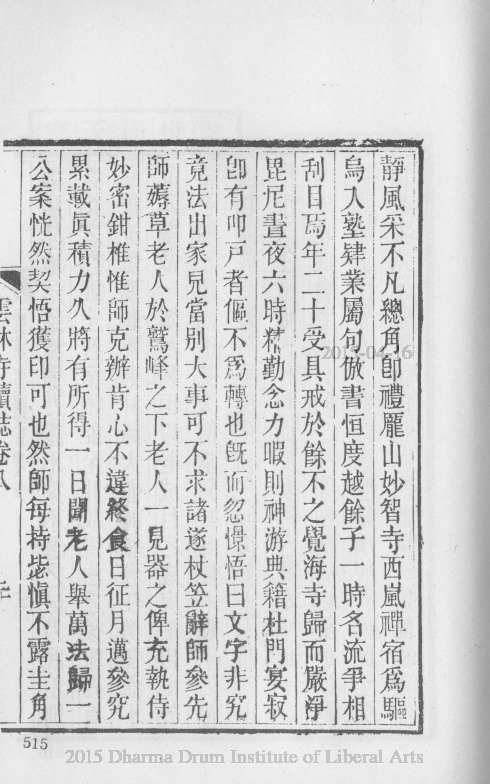 靜風采不凡總角卽禮龎山妙智寺西嵐禪宿爲驅
烏入塾肄業屬句倣書恒度越餘子一時名流爭相
刮目焉年二十受具戒於餘不之覺海寺歸而嚴淨
毘尼晝夜六時精勤念力暇則神游典籍杜門宴寂
卽有叩戸者傴不爲轉也旣而忽憬悟曰文字非究
竟法出家見當别大事可不求諸遂杖笠辭師參先
師嫮草老人於鷲峰之下老人一見器之俾充執侍
妙密鉗椎惟師克辦肯心不違終食日征月邁參究
累載眞積力久將有所得一日聞老人舉萬法歸一
公案恍然契悟獲印可也然師每持毖愼不露圭角
雲林寺續誌卷八
515
2015-04-16
2015 Dharma Drum Institute of Liberal Arts